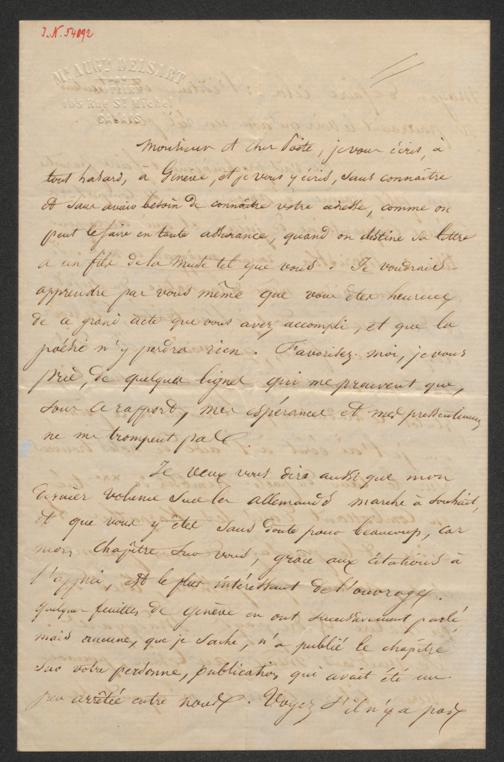 I.N. 54892
Mr AUGte DELSART
168 Rue St Michel
Monsieur et cher Poëte, je vous écris, à
tout hasard, à Genève, et je vous y écris, sans connaître
et sans avoir besoin de connaître votre adresse, comme on
peut le faire en toute assurance, quand on destine sa lettre
à un fils de la Muse tel que vous. Je voudrais
apprendre par vous même que vous êtes heureux
de ce grand acte que vous avez accompli, et que la
poésie n'y perdra rien. Favorisez-moi, je vous
prie, de quelques lignes qui me prouvent que,
sous ce rapport, mes espérances et mes pressentiments
ne me trompent pas.
Je veux vous dire aussi que mon
dernier volume sur les allemands marche à souhait,
et que vous y êtes sans doute pour beaucoup, car
mon chapitre sur vous, grâce aux citations à
, est le plus intéressant de l'ouvrage.
quelques feuilles de genève en ont successivement parlé
mais aucune, que je sache, n'a publié le chapitre
sur votre personne, publication qui avait été un
peu arrêtée entre nous. Voyez s'il n'y a pas